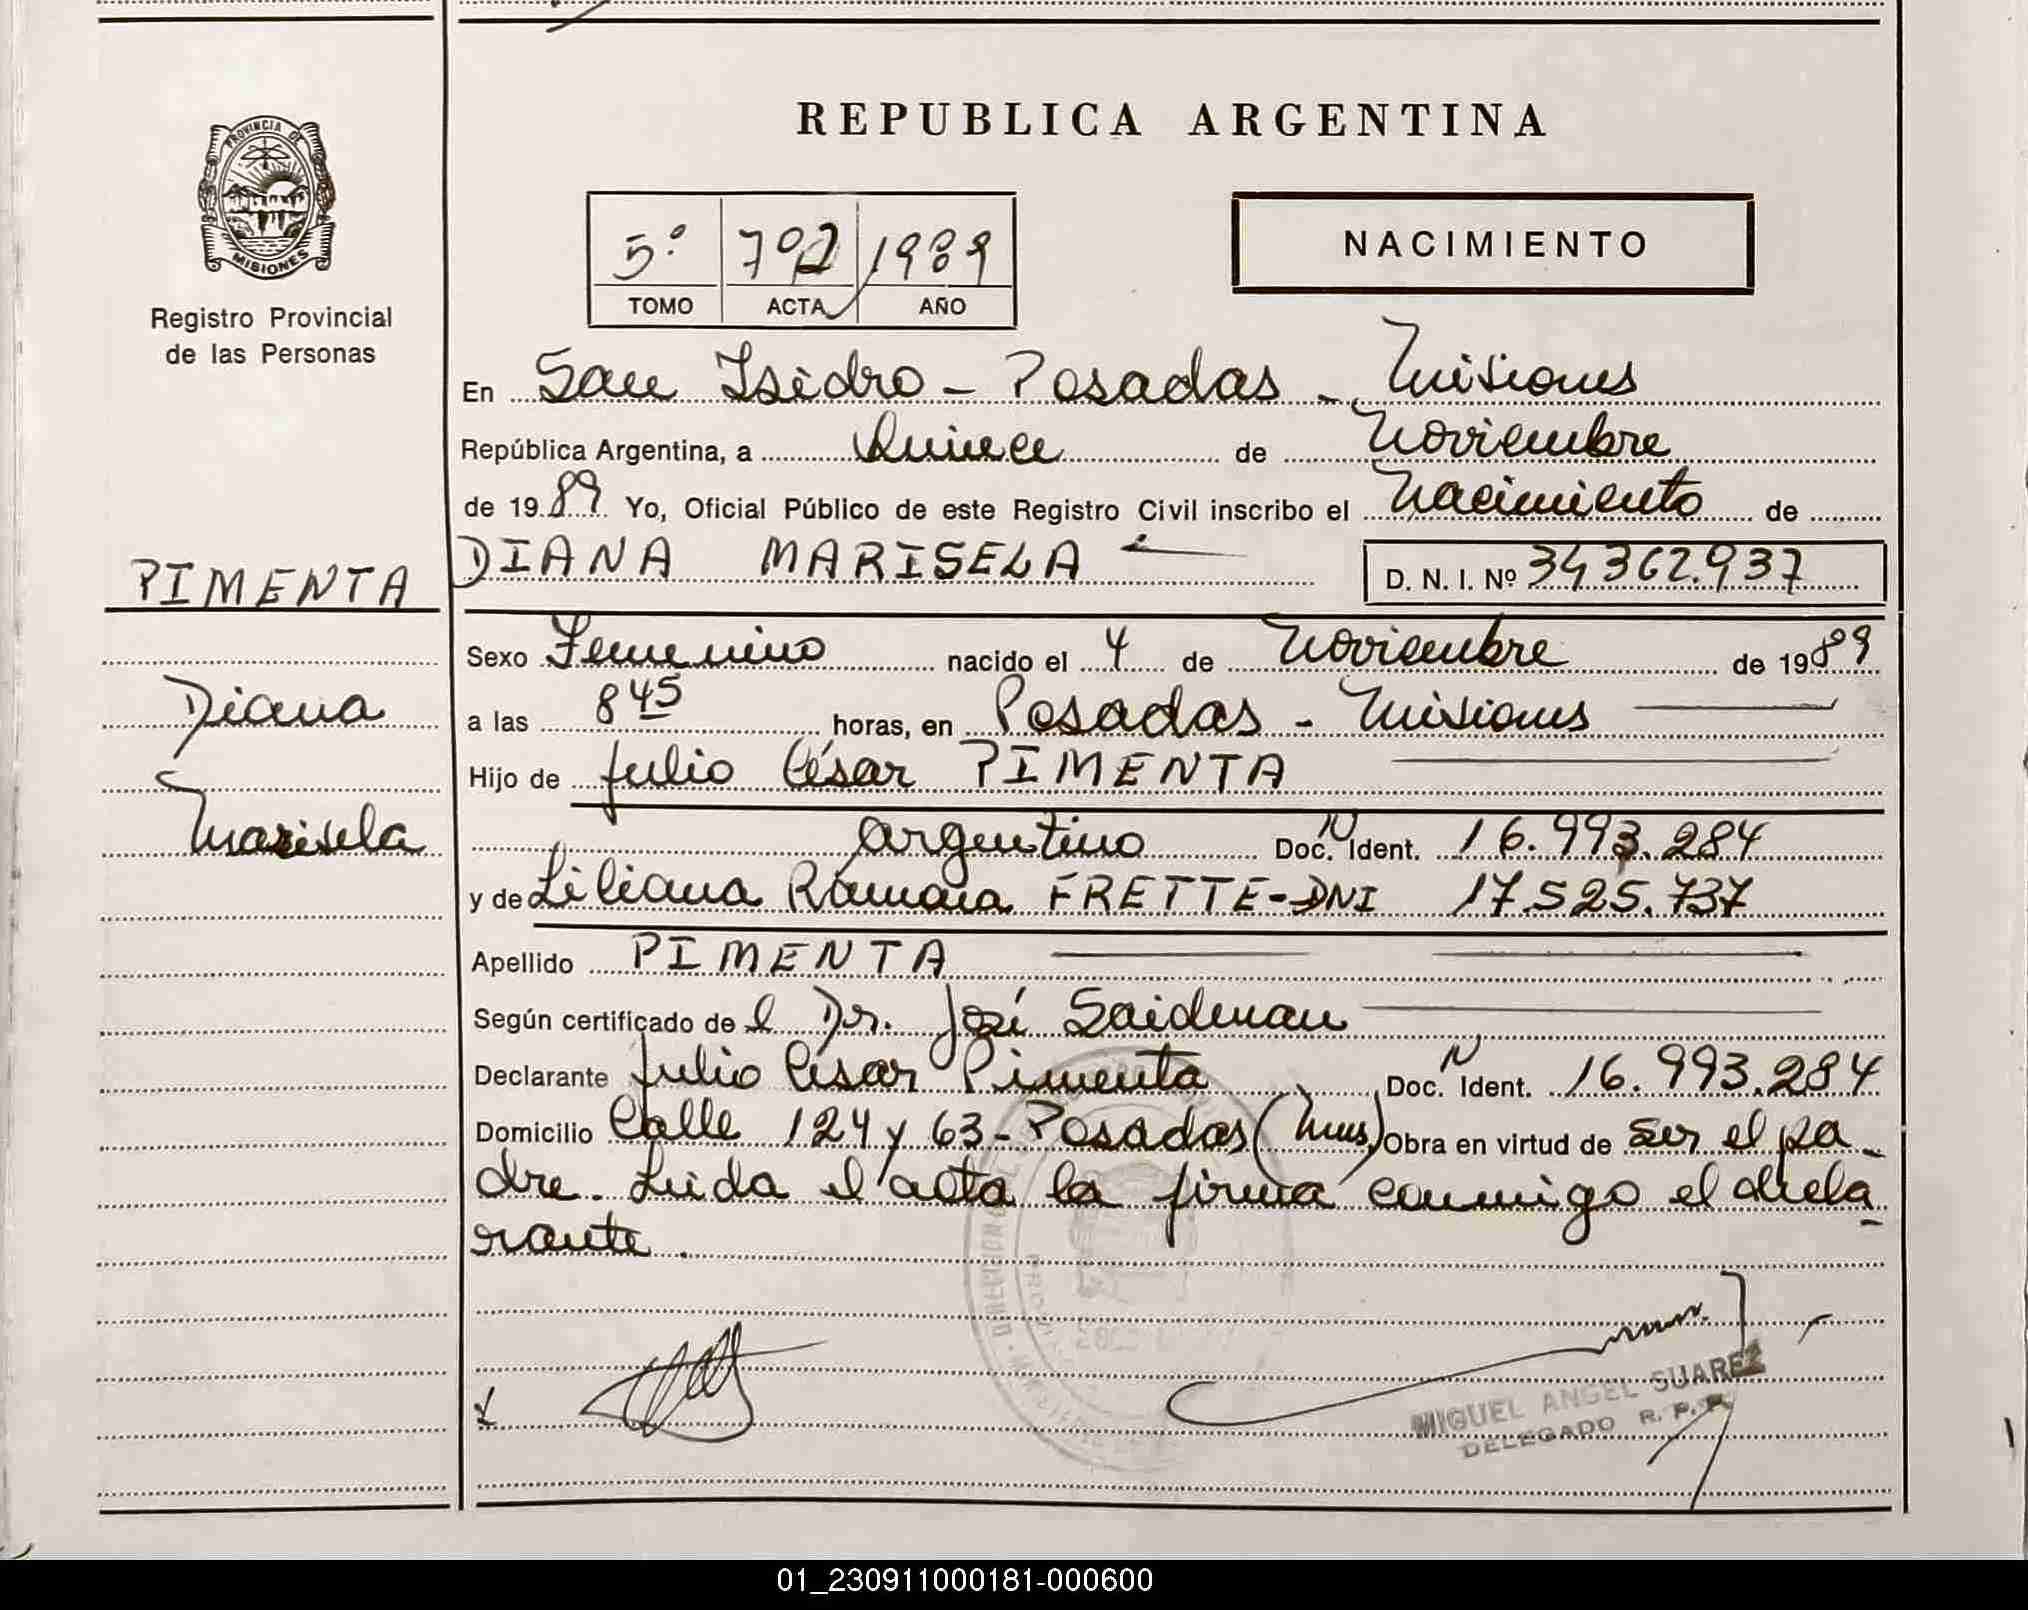 REPUBLICA ARGENTINA
PROVINCIA DE
MISIONES
Registro Provincial
de las Personas
5º 792 1989
TOMO ACTA AÑO
NACIMIENTO
En San Isidro - Posadas - Misiones
República Argentina, a Quince de Noviembre
de 1989 Yo, Oficial Público de este Registro Civil inscribo el Nacimiento de
PIMENTA
DIANA MARISELA
D. N. I. Nº 34362.937
Sexo Femenino nacido el 4 de Noviembre de 1989
Diana
a las 8 45 horas, en Posadas - Misiones
Hijo de Julio César PIMENTA
Marisela
argentino Doc. N Ident. 16.993.284
y de Liliana Ramona FRETTE-DNI 17.525.737
Apellido PIMENTA
Según certificado de l Dr. José Saidman
Declarante Julio César Pimenta Doc. N Ident. 16.993.284
Domicilio Calle 124 y 63 - Posadas (Mnes) Obra en virtud de ser el pa-
dre. Leida el acta la firma conmigo el decla-
rante.
MIGUEL ANGEL SUAREZ
DELEGADO R. P. P.
01_230911000181-000600